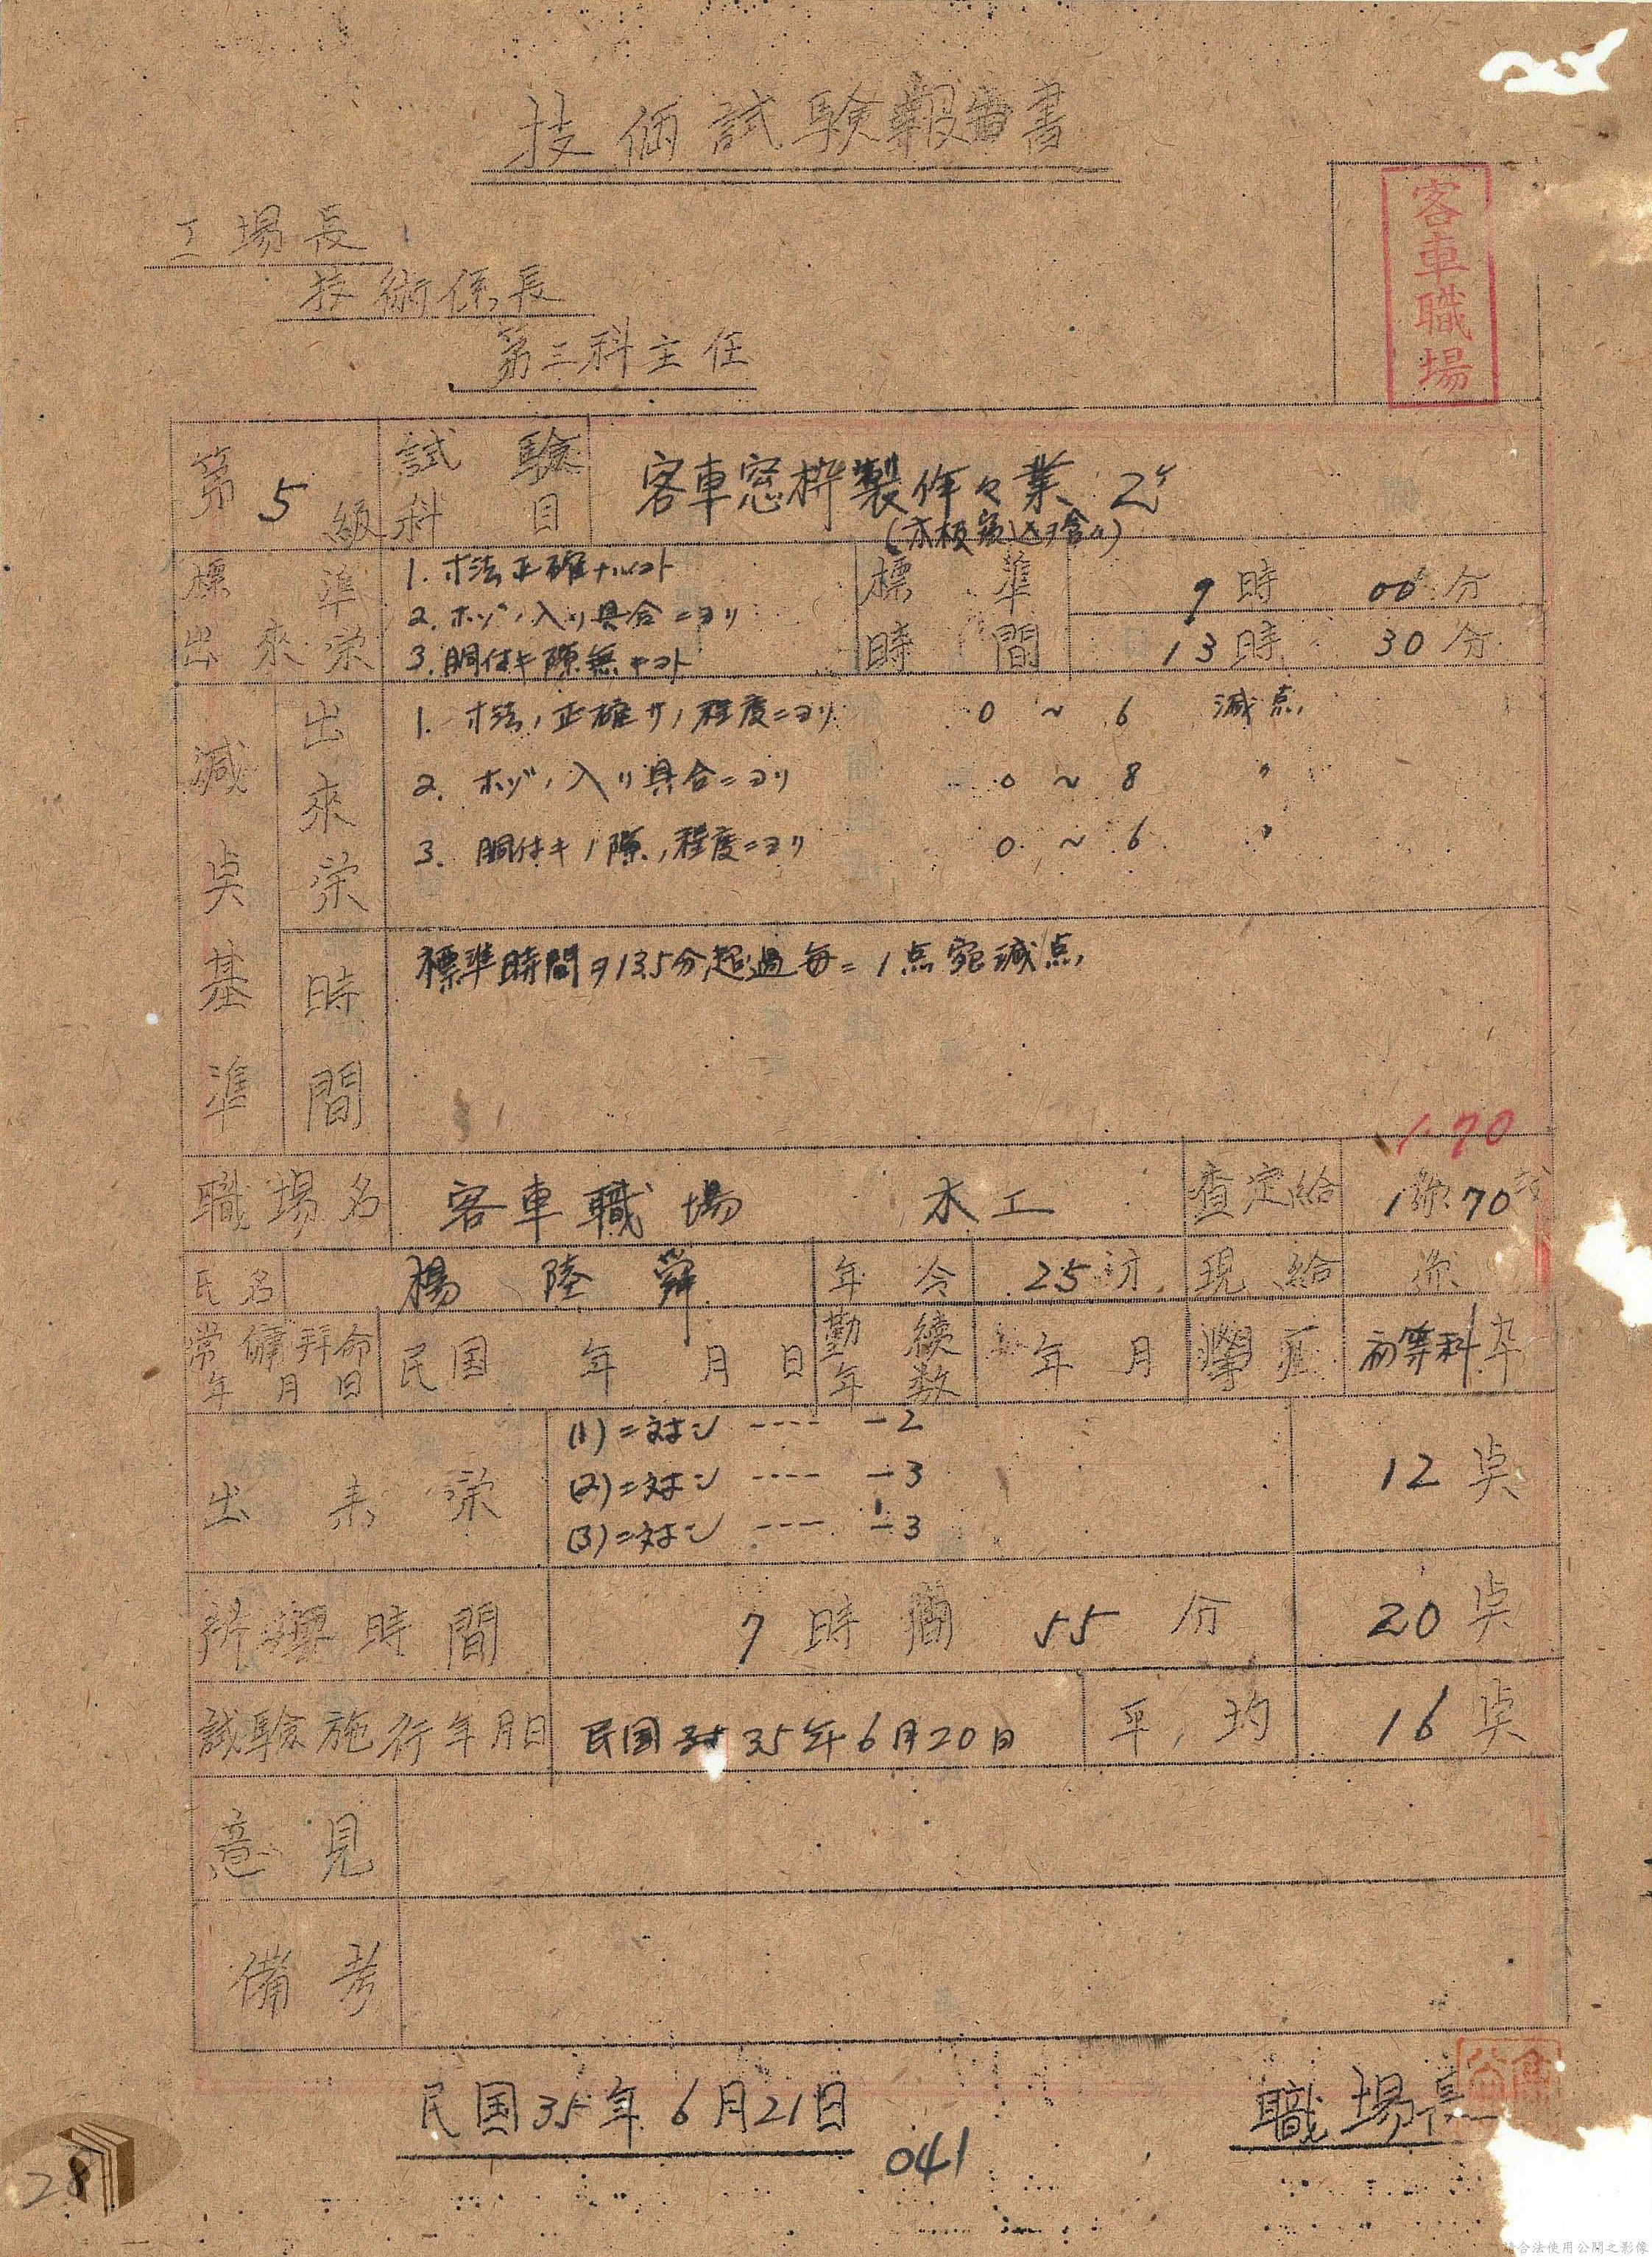 技倆試験報告書
客車職場
工場長
技術係長
第三科主任
第 5 級
試験科目
客車窓枠製作々業 2ケ
標準出來栄
1. 寸法正確ナルコト
2. ホゾノ入リ具合ニヨリ
3. 胴付キ隙無キコト
標準時間
9時 00分
13時 30分
減点基準
出來栄
1. 寸法ノ正確サノ程度ニヨリ 0 ~ 6 減点
2. ホゾノ入リ具合ニヨリ 0 ~ 8 〃
3. 胴付キノ隙ノ程度ニヨリ 0 ~ 6 〃
時間
標準時間ヲ13.5分超過毎ニ1点宛減点
1.70
職場名 客車職場 木工 査定給 1 70
氏名 楊陸舜 年令 25才 現給
常傭拜命年月日 民国 年 月 日 勤続年数 年 月 學歴 初等科卒
出来栄
(1)ニ対シ ---- -2
(2)ニ対シ ---- -3
(3)ニ対シ ---- -3
12点
所要時間 7時間55分 20点
試験施行年月日 民国 35年6月20日 平均 16点
意見
備考
民国35年6月21日
職場長
041
28
請合法使用公開之影像